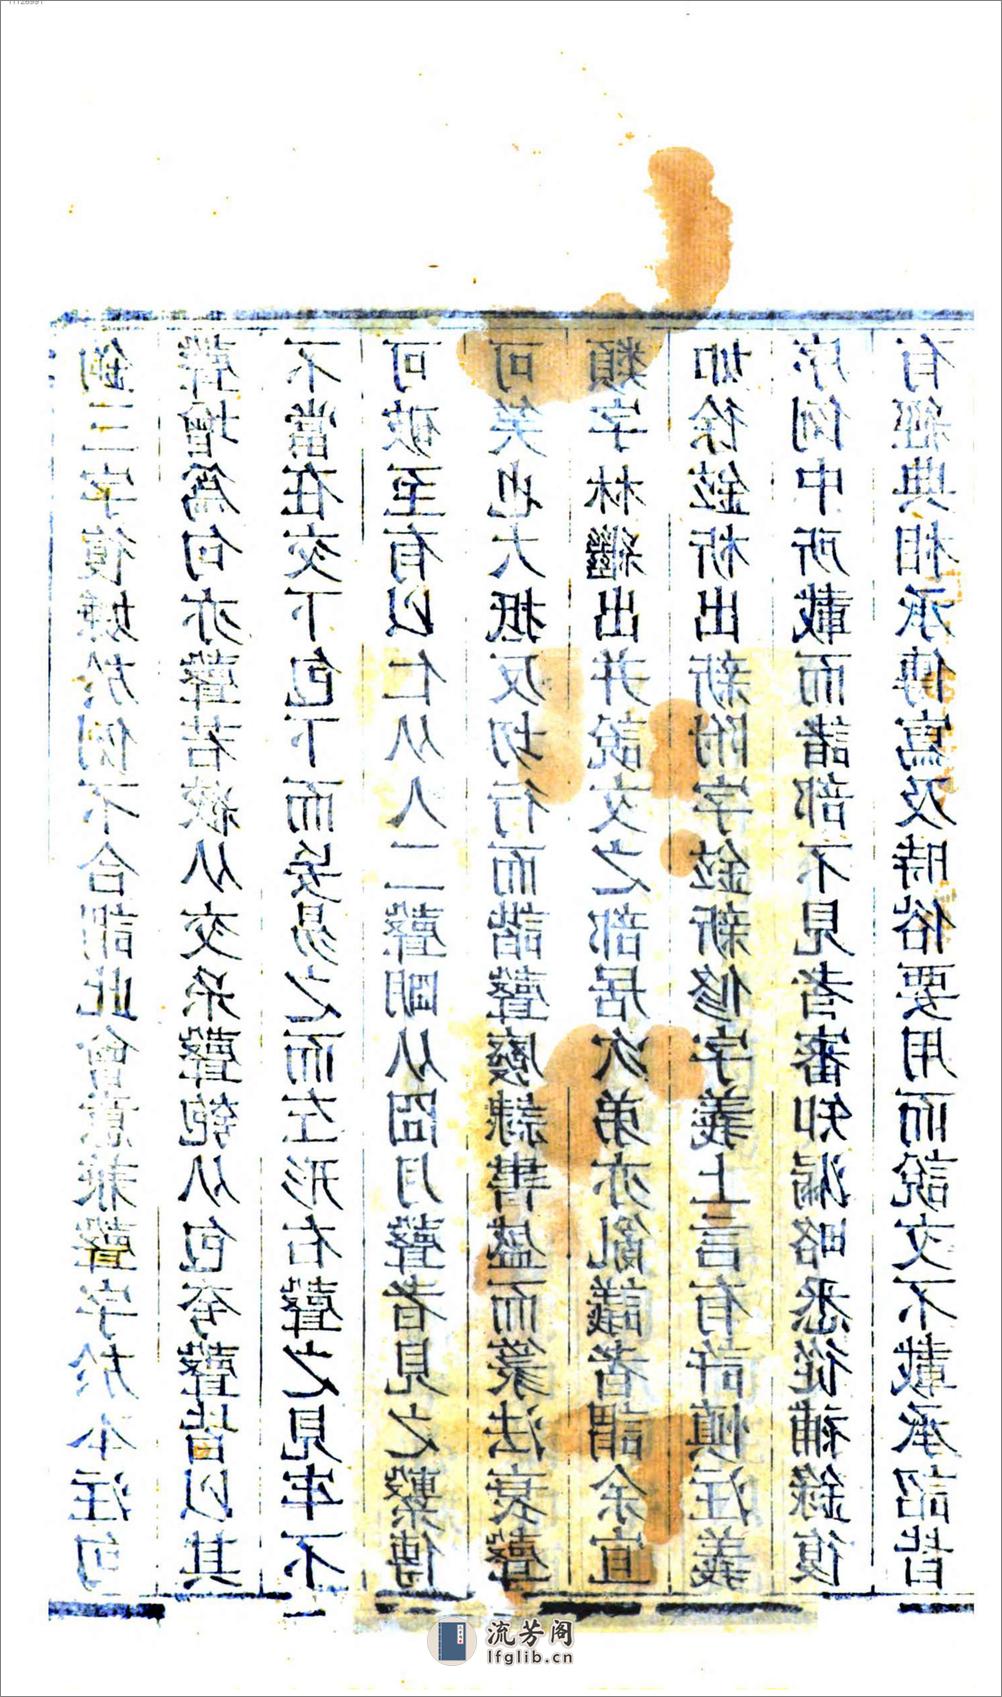 鉤三字復嫌於例不合詎此會意兼聲字於本注句
聲增爲句亦聲若絞从交糸聲匏从包夸聲皆以其
不當在交下包下而妄易之而左形右聲之見牢不
可破至有以仁从人二聲朙从囧月聲者見之繫傳
可笑也大抵反切行而諧聲廢隸書盛而篆法衰聲
類字林繼出并說文之部居次弟亦亂議者謂余宜
如徐鉉析出新附字鉉新修字義上言有許慎注義
序例中所載而諸部不見者審知漏略悉從補錄復
有經典相承傳寫及時俗要用而說文不載承詔皆
流芳阁
lfglib.cn